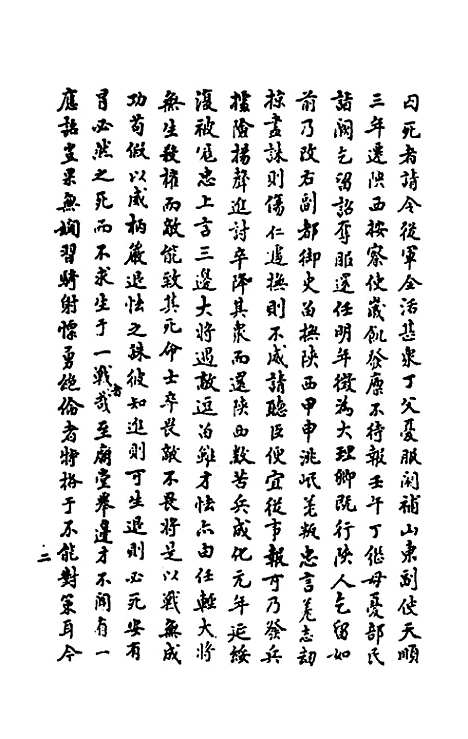 囚死者請令從軍全活甚衆丁父憂服闋補山東副使天順
三年遷陝西按察使歲飢發廩不待報壬午丁繼母憂部民
詣闕乞留詔奪服還任明年徵為大理卿既行陝人乞留如
前乃改右副都御史留撫陝西甲申洮岷羌叛忠言羌志劫
掠盡誅則傷仁遽撫則不威請聽臣便宜從事報可乃發兵
據險揚聲進討卒降其衆而還陝西數苦兵成化元年延綏
復被寇忠上言三邊大將遇敵逗泊雖才怯亦由任輕大將
無生殺權而敵能致其死命士卒畏敵不畏將是以戰無成
功苟假以威柄嚴退怯之誅彼知進則可生退則必死安有
冒必然之死而不求生于一戰者哉至廟堂舉邊才不聞有一
應詔豈果無嫺習騎射慓勇絕倫者將格于不能對策耳今
二